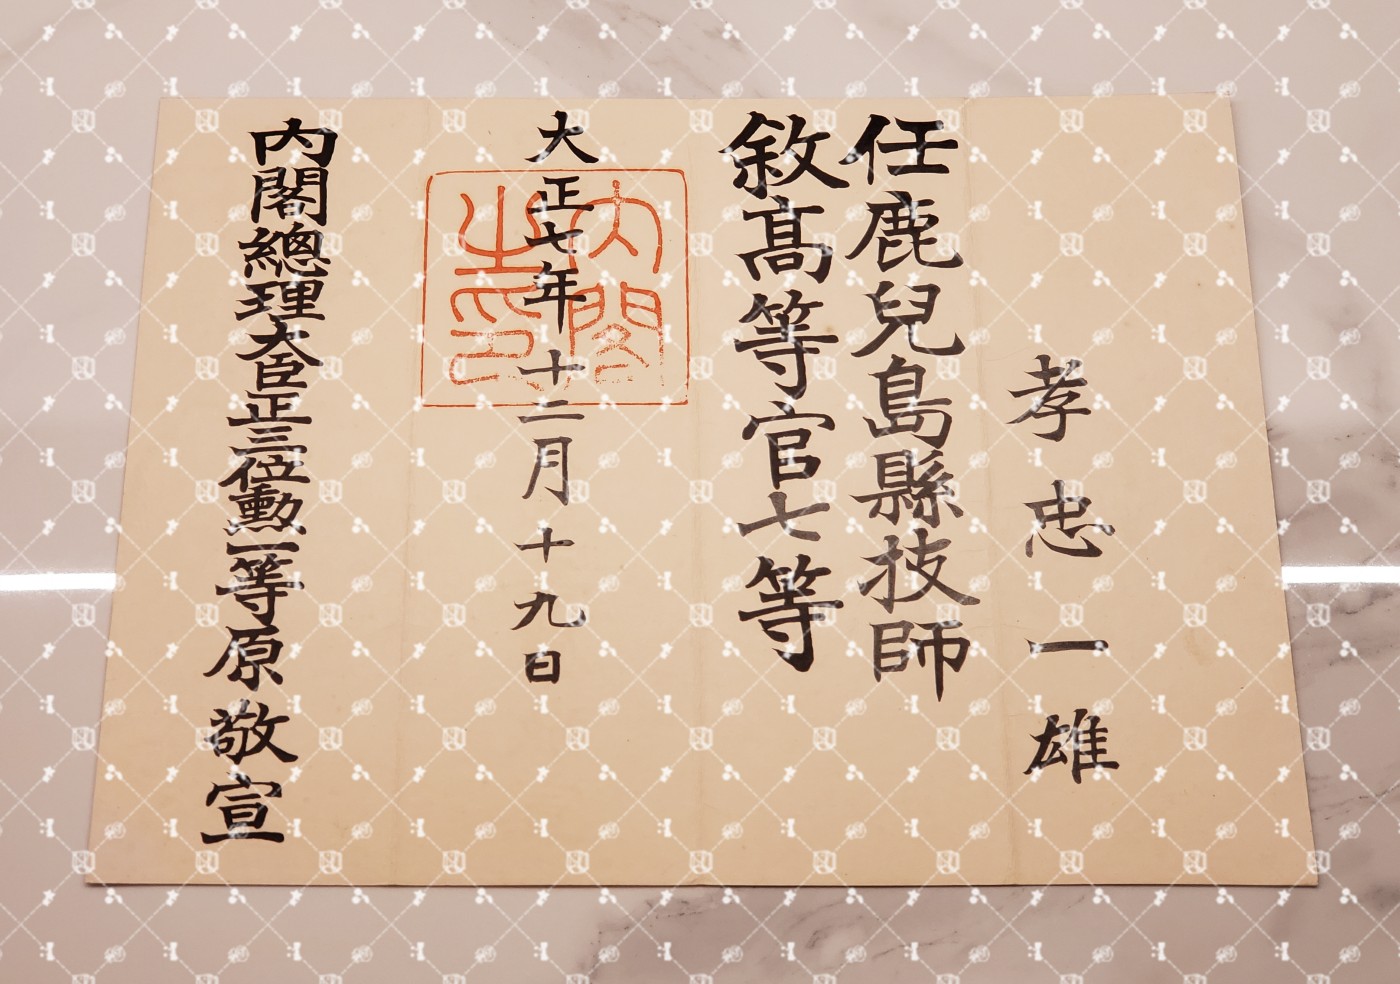 孝忠一雄
任鹿兒島縣技師
敘高等官七等
大正七年十二月十九日
内閣之印
内閣總理大臣正三位勳一等原敬宣